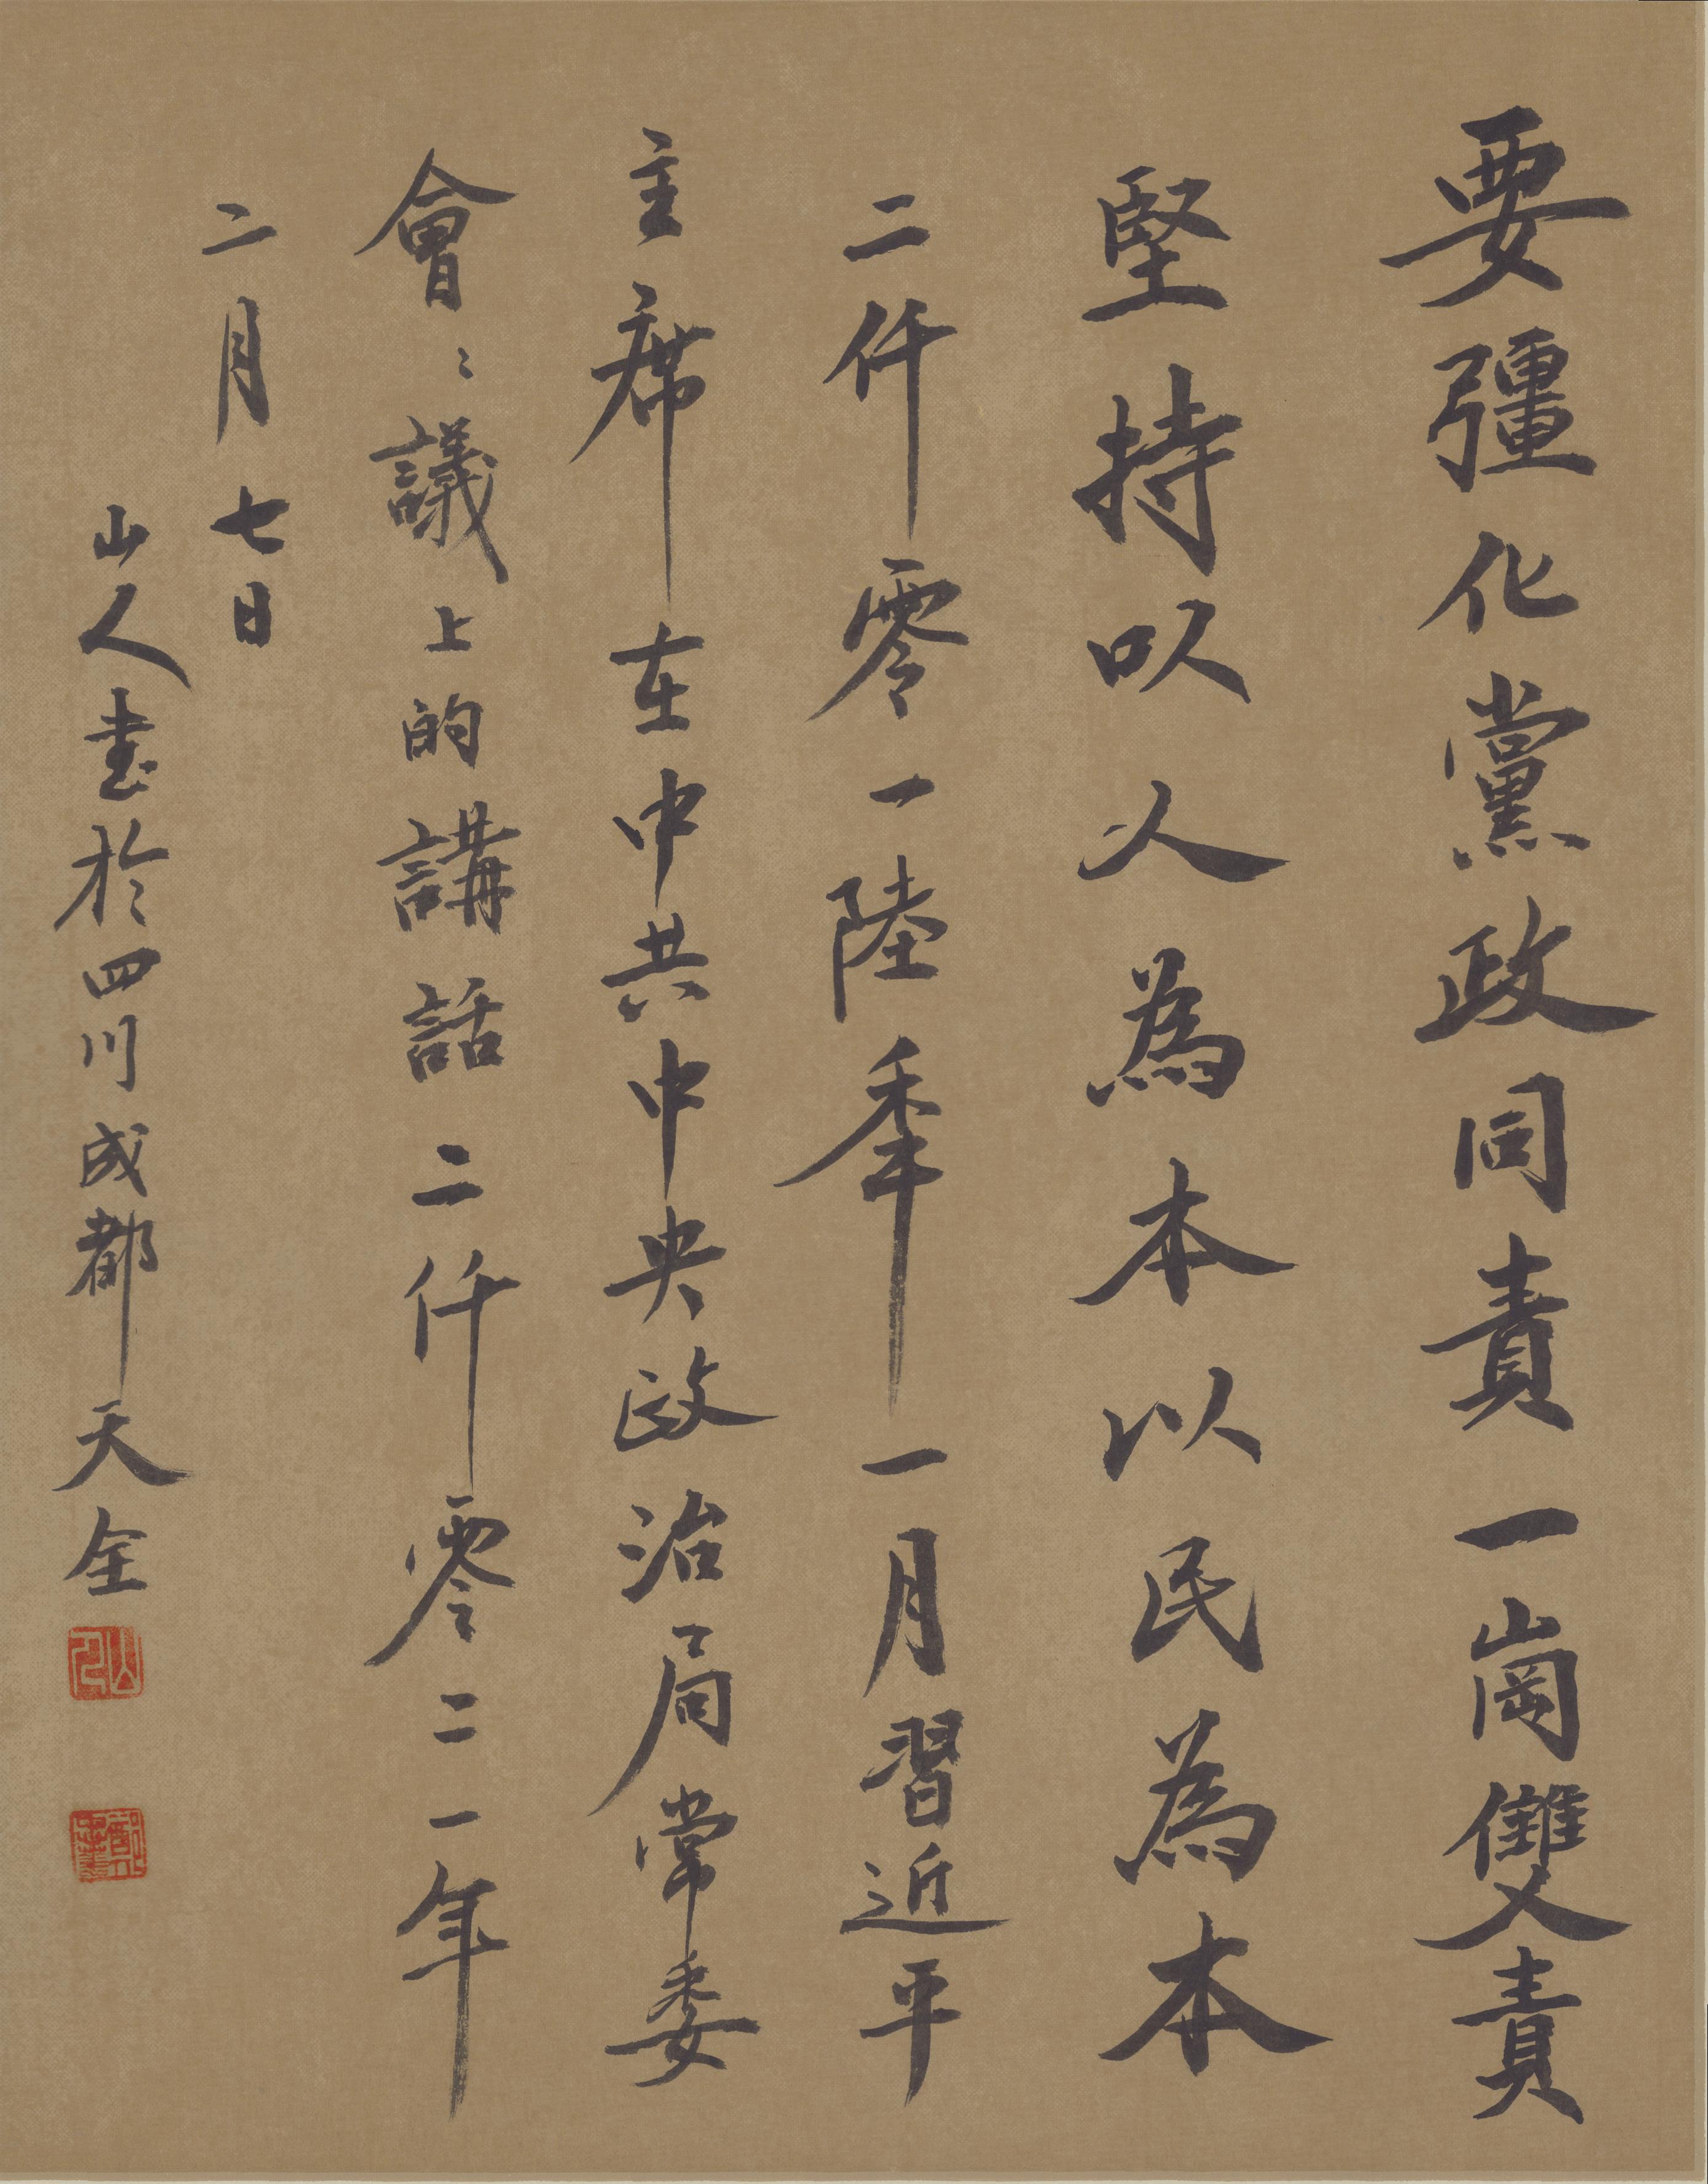 要彊化黨政同責一崗雙責
堅持以人為本以民為本
二仟零一陸秊一月習近平
主席在中共中央政治局常委
會〻議上的講話二仟零二一年
二月七日
山人書於四川成都天全
山人